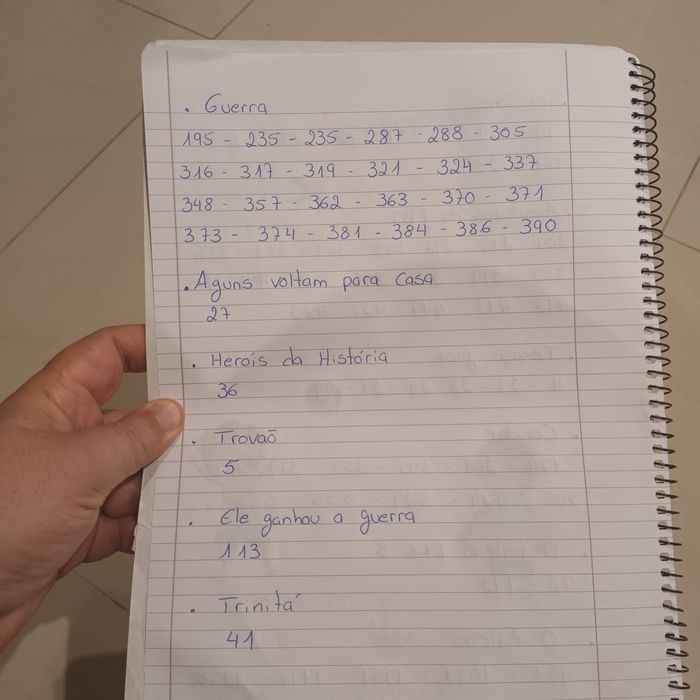 . Guerra
195 - 235 - 235 - 287 - 288 - 305
316 - 317 - 319 - 321 - 324 - 337
348 - 357 - 362 - 363 - 370 - 371
373 - 374 - 381 - 384 - 386 - 390
. Aguns voltam para Casa
27
. Herois da História
36
. Trovaõ
5
. Ele ganhou a guerra
113
. Trinitá
41